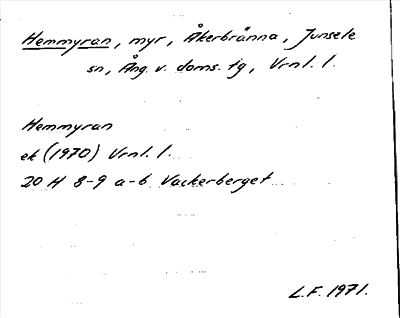 Hemmyran, myr, Åkerbränna, Junsele
sn, Ång. v. doms. tg, Vrnl. l.
Hemmyran
ek (1970) Vrnl. l.
20 H 8-9 a-b Vackerberget
L.F. 1971.